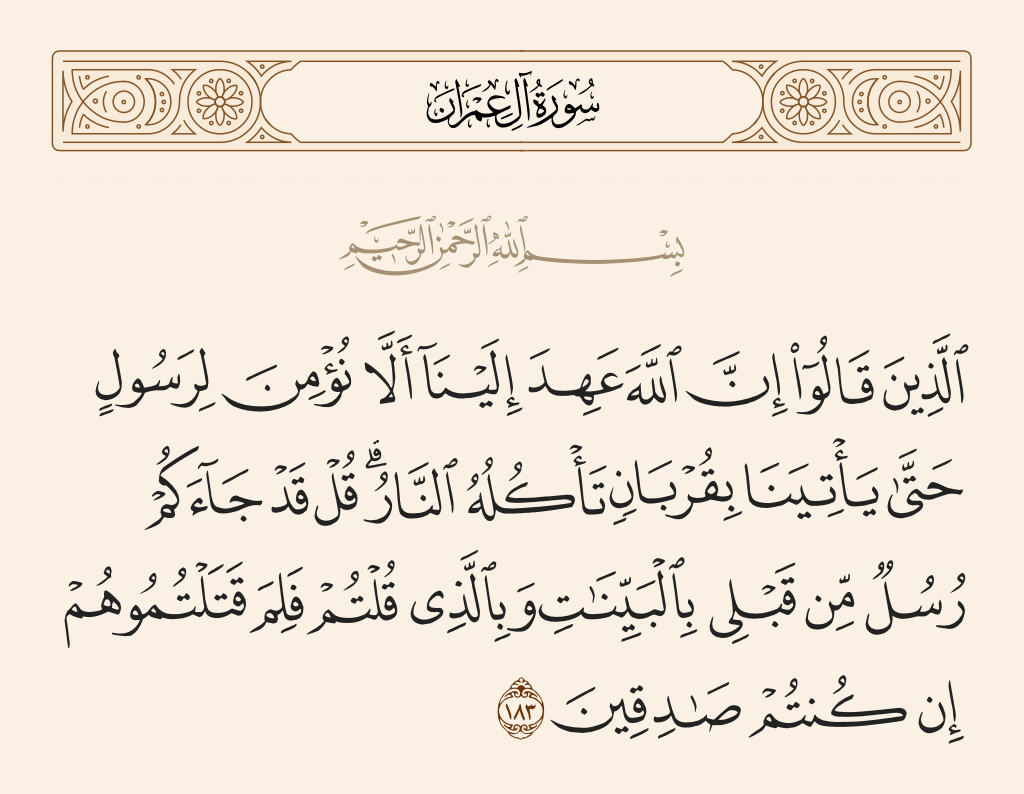 سُورَةُ آلِ عِمْرَان
بِسْمِ ٱللَّهِ ٱلرَّحْمَٰنِ ٱلرَّحِيمِ
ٱلَّذِينَ قَالُوٓا۟ إِنَّ ٱللَّهَ عَهِدَ إِلَيْنَآ أَلَّا نُؤْمِنَ لِرَسُولٍ
حَتَّىٰ يَأْتِيَنَا بِقُرْبَانٍ تَأْكُلُهُ ٱلنَّارُ ۗ قُلْ قَدْ جَآءَكُمْ
رُسُلٌ مِّن قَبْلِى بِٱلْبَيِّنَٰتِ وَبِٱلَّذِى قُلْتُمْ فَلِمَ قَتَلْتُمُوهُمْ
إِن كُنتُمْ صَٰدِقِينَ ١٨٣